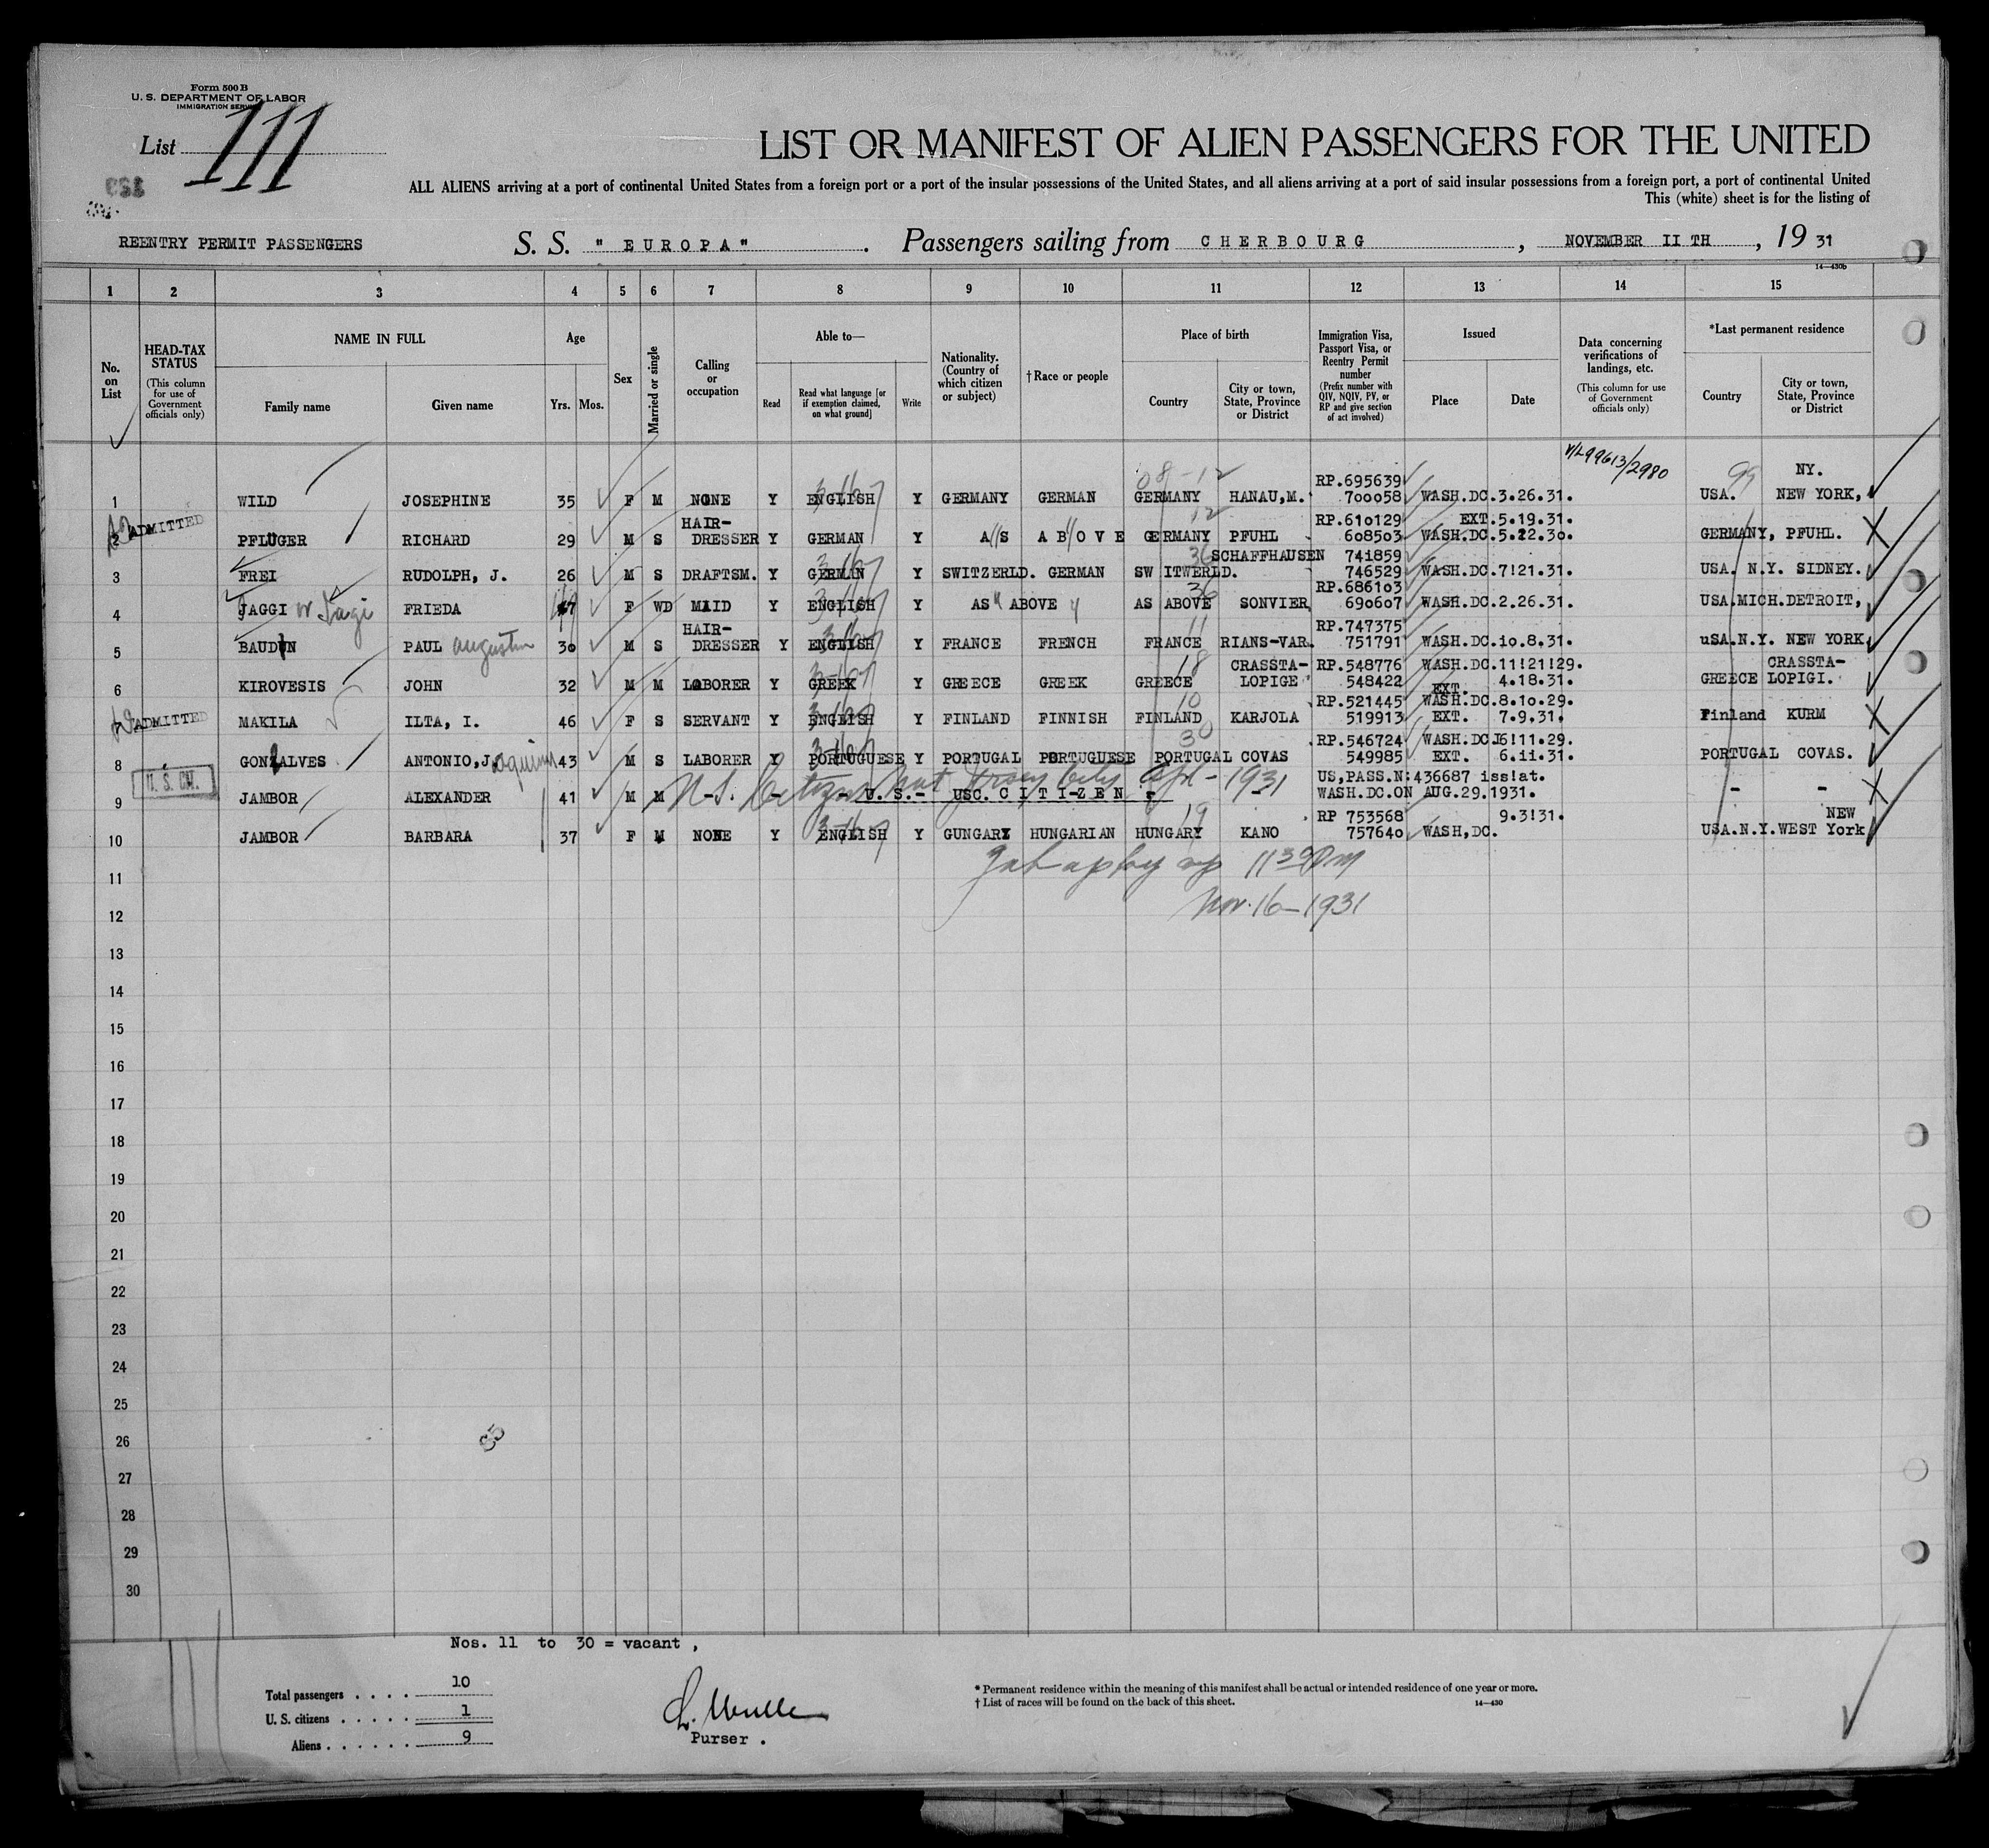 Form 500 B
U. S. DEPARTMENT OF LABOR
IMMIGRATION SERVICE
List 111
LIST OR MANIFEST OF ALIEN PASSENGERS FOR THE UNITED
ALL ALIENS arriving at a port of continental United States from a foreign port or a port of the insular possessions of the United States, and all aliens arriving at a port of said insular possessions from a foreign port, a port of continental United
This (white) sheet is for the listing of
REENTRY PERMIT PASSENGERS S. S. "EUROPA". Passengers sailing from CHERBOURG, NOVEMBER II TH, 19 31
14—430b
1 2 3 4 5 6 7 8 9 10 11 12 13 14 15
No. on List
HEAD-TAX STATUS (This column for use of Government officials only)
NAME IN FULL Family name Given name
Age Yrs. Mos.
Sex
Married or single
Calling or occupation
Able to— Read Read what language [or if exemption claimed, on what ground] Write
Nationality. (Country of which citizen or subject)
†Race or people
Place of birth Country City or town, State, Province or District
Immigration Visa, Passport Visa, or Reentry Permit number (Prefix number with QIV, NQIV, PV, or RP and give section of act involved)
Issued Place Date
Data concerning verifications of landings, etc. (This column for use of Government officials only)
*Last permanent residence Country City or town, State, Province or District
08-12 RP.695639 V/L99613/2980 99 NY.
1 WILD JOSEPHINE 35 F M NONE Y ENGLISH Y GERMANY GERMAN GERMANY HANAU,M. 700058 WASH.DC.3.26.31. USA. NEW YORK,
ADMITTED HAIR- 12 RP.610129 EXT.5.19.31.
2 PFLUGER RICHARD 29 M S DRESSER Y GERMAN Y A S A B O V E GERMANY PFUHL 608503 WASH.DC.5.22.30. GERMANY, PFUHL.
36 SCHAFFHAUSEN 741859
3 FREI RUDOLPH, J. 26 M S DRAFTSM. Y GERMAN Y SWITZERLD. GERMAN SW ITWERLD. 746529 WASH.DC.7!21.31. USA. N.Y. SIDNEY.
36 RP.686103
4 JAGGI FRIEDA F WD MAID Y ENGLISH Y AS ABOVE AS ABOVE SONVIER 690607 WASH.DC.2.26.31. USA.MICH.DETROIT,
HAIR- 11 RP.747375
5 BAUDUN PAUL Augustin 30 M S DRESSER Y ENGLISH Y FRANCE FRENCH FRANCE RIANS-VAR. 751791 WASH.DC.10.8.31. uSA.N.Y. NEW YORK
18 CRASSTA- RP.548776 WASH.DC.11!21!29. CRASSTA-
6 KIROVESIS JOHN 32 M M LABORER Y GREEK Y GREECE GREEK GREECE LOPIGE 548422 EXT. 4.18.31. GREECE LOPIGI.
10 RP.521445 WASH.DC.8.10.29.
7 ADMITTED MAKILA ILTA, I. 46 F S SERVANT Y ENGLISH Y FINLAND FINNISH FINLAND KARJOLA 519913 EXT. 7.9.31. Finland KURM
30 RP.546724 WASH.DC.16!11.29.
8 GONZALVES ANTONIO,J. 43 M S LABORER Y PORTUGUESE Y PORTUGAL PORTUGUESE PORTUGAL COVAS 549985 EXT. 6.11.31. PORTUGAL COVAS.
U. S. CIT. US,PASS.N:436687 iss!at.
9 JAMBOR ALEXANDER 41 M M -U.S.- USC. C I T I Z E N - WASH.DC.ON AUG.29.1931. - -
Citizen Nat Jersey City Apl - 1931
19 RP 753568 9.3!31. NEW
10 JAMBOR BARBARA 37 F M NONE Y ENGLISH Y GUNGARY HUNGARIAN HUNGARY KANO 757640 WASH,DC. USA.N.Y.WEST York
11 11 30 Pm
12 Nov. 16-1931
13
14
15
16
17
18
19
20
21
22
23
24
25
26
27
28
29
30
Nos. 11 to 30 = vacant ,
Total passengers . . . . 10
U. S. citizens . . . . . 1
Aliens . . . . . . 9
Purser .
* Permanent residence within the meaning of this manifest shall be actual or intended residence of one year or more.
† List of races will be found on the back of this sheet. 14—430